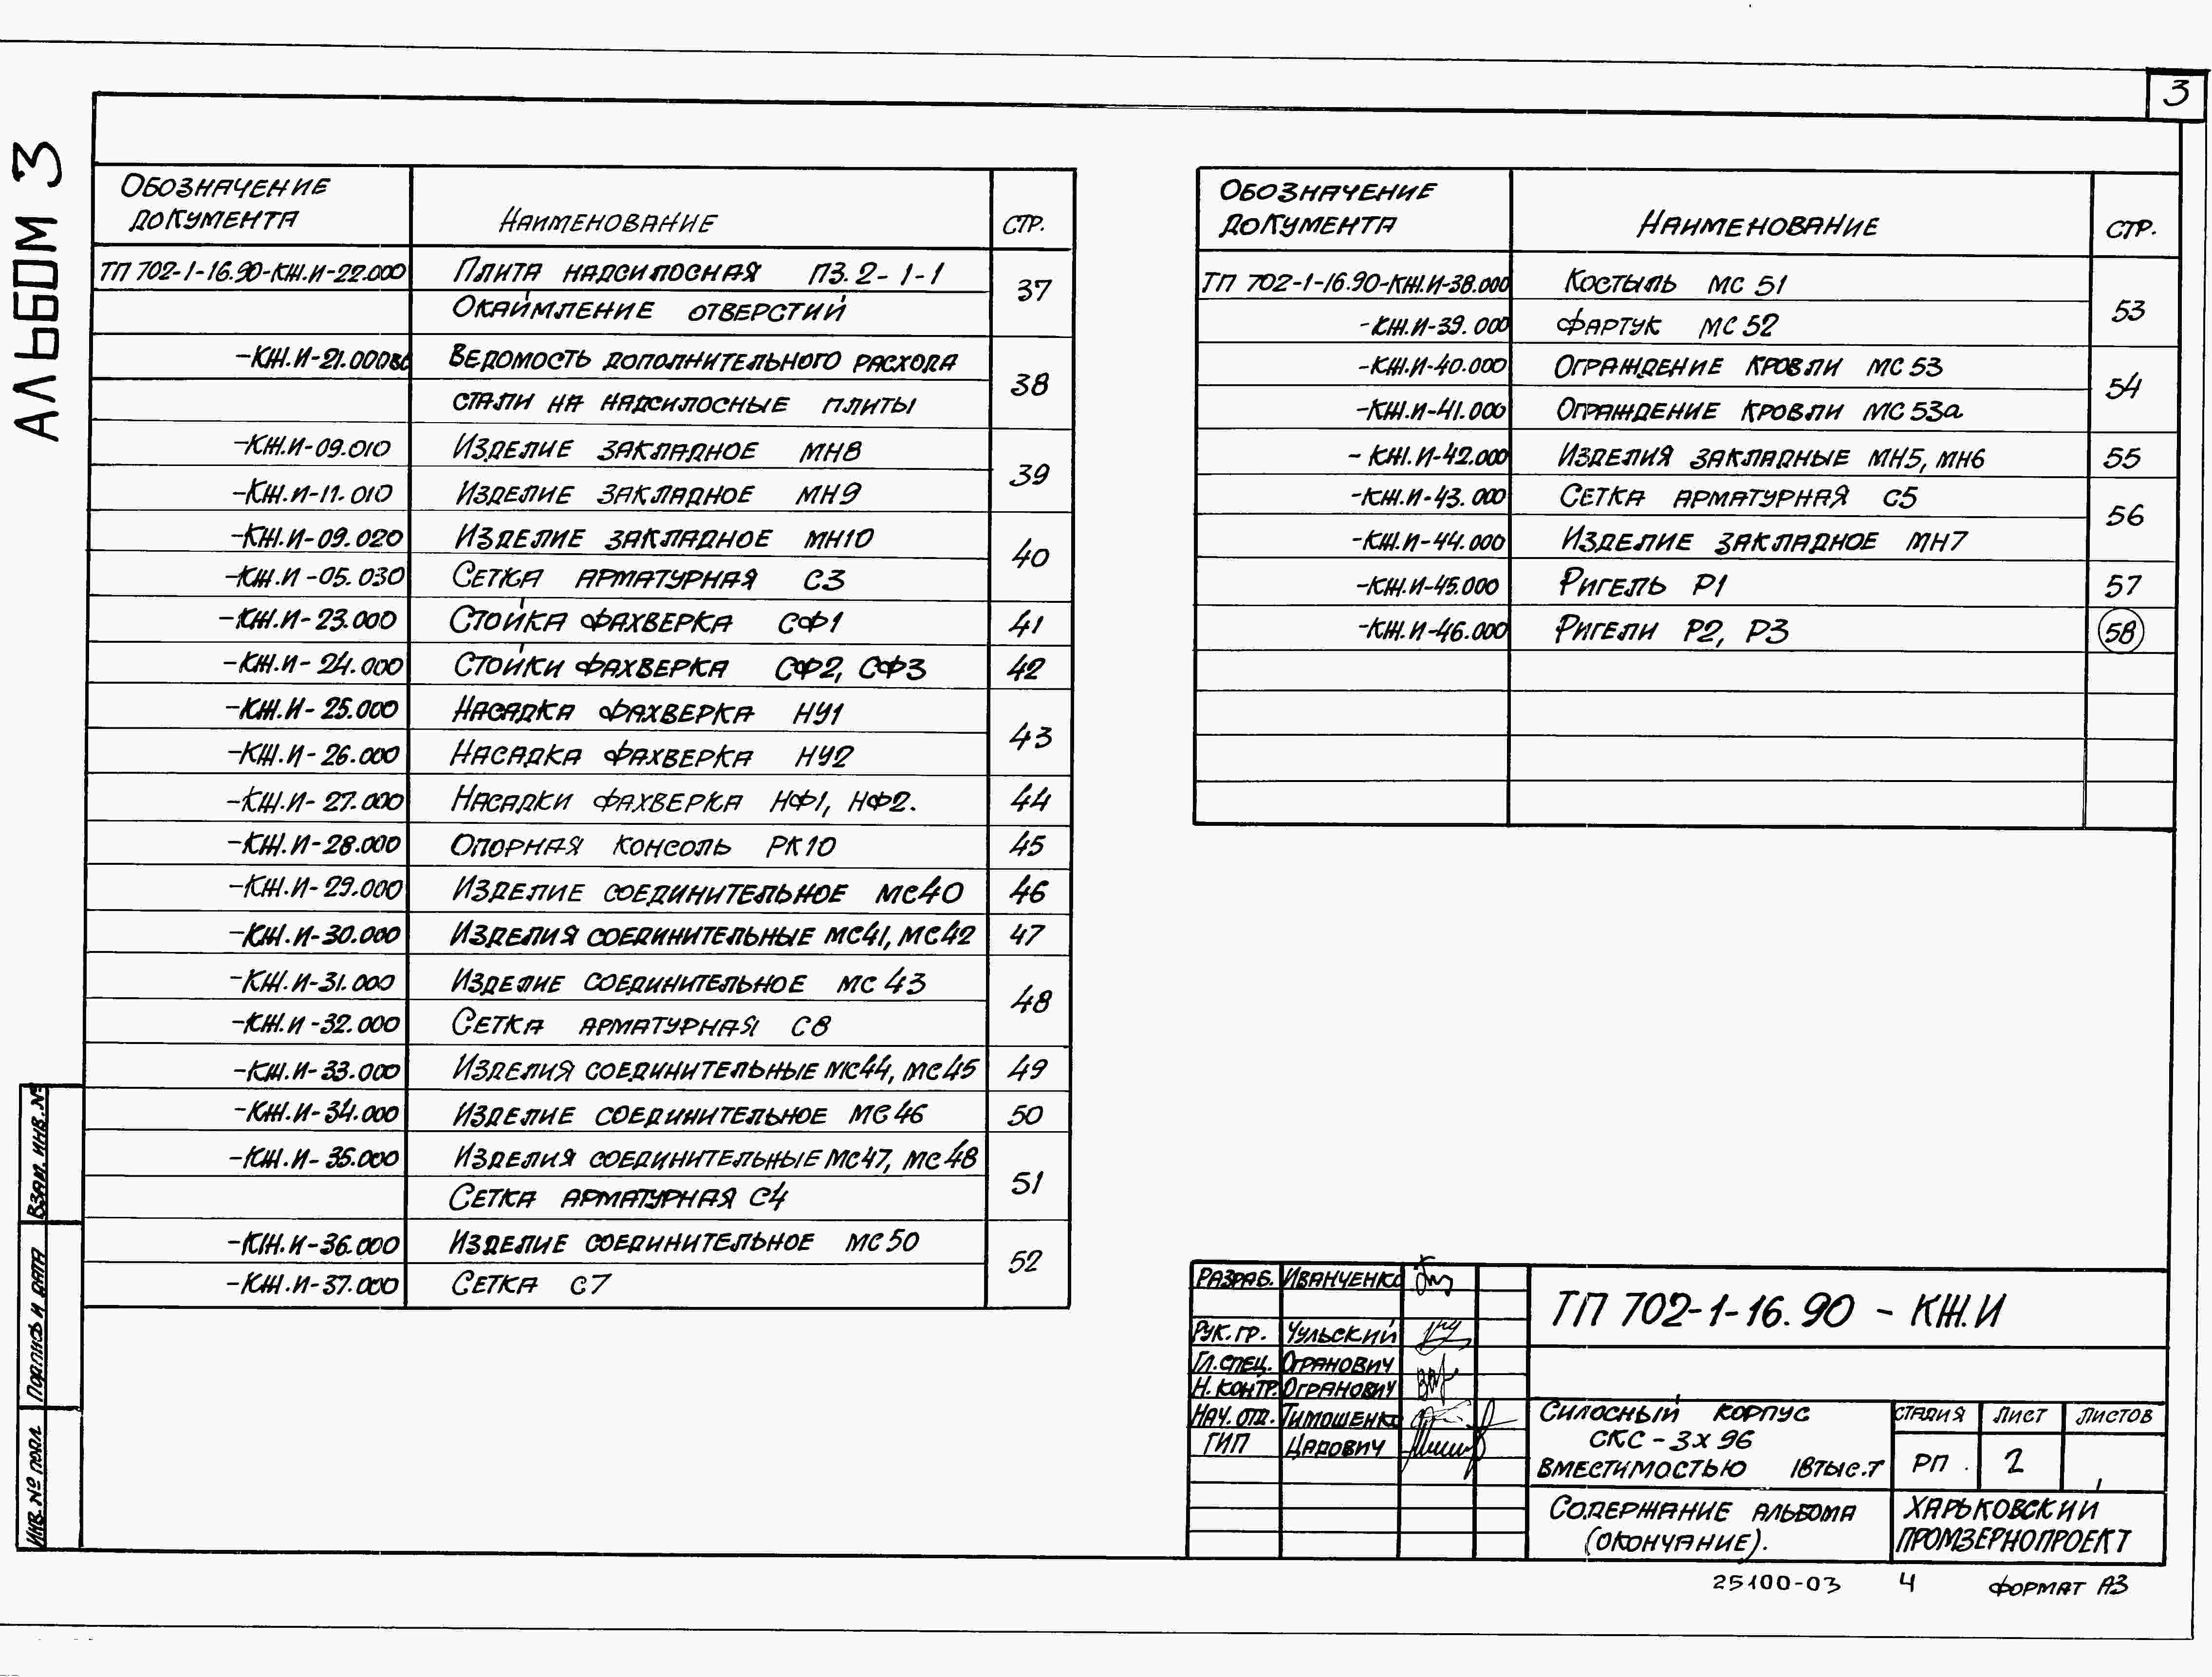 3
АЛЬБОМ 3
ОБОЗНАЧЕНИЕ ДОКУМЕНТА НАИМЕНОВАНИЕ СТР.
ТП 702-1-16.90-КЖ.И-22.000 ПЛИТА НАДСИЛОСНАЯ П3.2-1-1 37
ОКАЙМЛЕНИЕ ОТВЕРСТИЙ
-КЖ.И-21.000ВС ВЕДОМОСТЬ ДОПОЛНИТЕЛЬНОГО РАСХОДА 38
СТАЛИ НА НАДСИЛОСНЫЕ ПЛИТЫ
-КЖ.И-09.010 ИЗДЕЛИЕ ЗАКЛАДНОЕ МН8 39
-КЖ.И-11.010 ИЗДЕЛИЕ ЗАКЛАДНОЕ МН9
-КЖ.И-09.020 ИЗДЕЛИЕ ЗАКЛАДНОЕ МН10 40
-КЖ.И-05.030 СЕТКА АРМАТУРНАЯ С3
-КЖ.И-23.000 СТОЙКА ФАХВЕРКА СФ1 41
-КЖ.И-24.000 СТОЙКИ ФАХВЕРКА СФ2, СФ3 42
-КЖ.И-25.000 НАСАДКА ФАХВЕРКА НУ1 43
-КЖ.И-26.000 НАСАДКА ФАХВЕРКА НУ2
-КЖ.И-27.000 НАСАДКИ ФАХВЕРКА НФ1, НФ2. 44
-КЖ.И-28.000 ОПОРНАЯ КОНСОЛЬ РК10 45
-КЖ.И-29.000 ИЗДЕЛИЕ СОЕДИНИТЕЛЬНОЕ МС40 46
-КЖ.И-30.000 ИЗДЕЛИЯ СОЕДИНИТЕЛЬНЫЕ МС41, МС42 47
-КЖ.И-31.000 ИЗДЕЛИЕ СОЕДИНИТЕЛЬНОЕ МС 43 48
-КЖ.И-32.000 СЕТКА АРМАТУРНАЯ С8
-КЖ.И-33.000 ИЗДЕЛИЯ СОЕДИНИТЕЛЬНЫЕ МС44, МС45 49
-КЖ.И-34.000 ИЗДЕЛИЕ СОЕДИНИТЕЛЬНОЕ МС46 50
-КЖ.И-35.000 ИЗДЕЛИЯ СОЕДИНИТЕЛЬНЫЕ МС47, МС48 51
СЕТКА АРМАТУРНАЯ С4
-КЖ.И-36.000 ИЗДЕЛИЕ СОЕДИНИТЕЛЬНОЕ МС50 52
-КЖ.И-37.000 СЕТКА С7
ОБОЗНАЧЕНИЕ ДОКУМЕНТА НАИМЕНОВАНИЕ СТР.
ТП 702-1-16.90-КЖ.И-38.000 КОСТЫЛЬ МС 51 53
-КЖ.И-39.000 ФАРТУК МС 52
-КЖ.И-40.000 ОГРАЖДЕНИЕ КРОВЛИ МС53 54
-КЖ.И-41.000 ОГРАЖДЕНИЕ КРОВЛИ МС53а
-КЖ.И-42.000 ИЗДЕЛИЯ ЗАКЛАДНЫЕ МН5, МН6 55
-КЖ.И-43.000 СЕТКА АРМАТУРНАЯ С5 56
-КЖ.И-44.000 ИЗДЕЛИЕ ЗАКЛАДНОЕ МН7
-КЖ.И-45.000 РИГЕЛЬ Р1 57
-КЖ.И-46.000 РИГЕЛИ Р2, Р3 58
ВЗАМ. ИНВ.№
ПОДПИСЬ И ДАТА
ИНВ.№ ПОДЛ.
РАЗРАБ. ИВАНЧЕНКО
РУК.ГР. ЧУЛЬСКИЙ
ГЛ.СПЕЦ. ОГРАНОВИЧ
Н.КОНТР. ОГРАНОВИЧ
НАЧ.ОТД. ТИМОШЕНКО
ГИП ЦАДОВИЧ
ТП 702-1-16.90 - КЖ.И
СИЛОСНЫЙ КОРПУС
СКС-3х96
ВМЕСТИМОСТЬЮ 18ТЫС.Т
СТАДИЯ ЛИСТ ЛИСТОВ
РП 2
СОДЕРЖАНИЕ АЛЬБОМА
(ОКОНЧАНИЕ).
ХАРЬКОВСКИЙ
ПРОМЗЕРНОПРОЕКТ
25100-03 4 ФОРМАТ А3